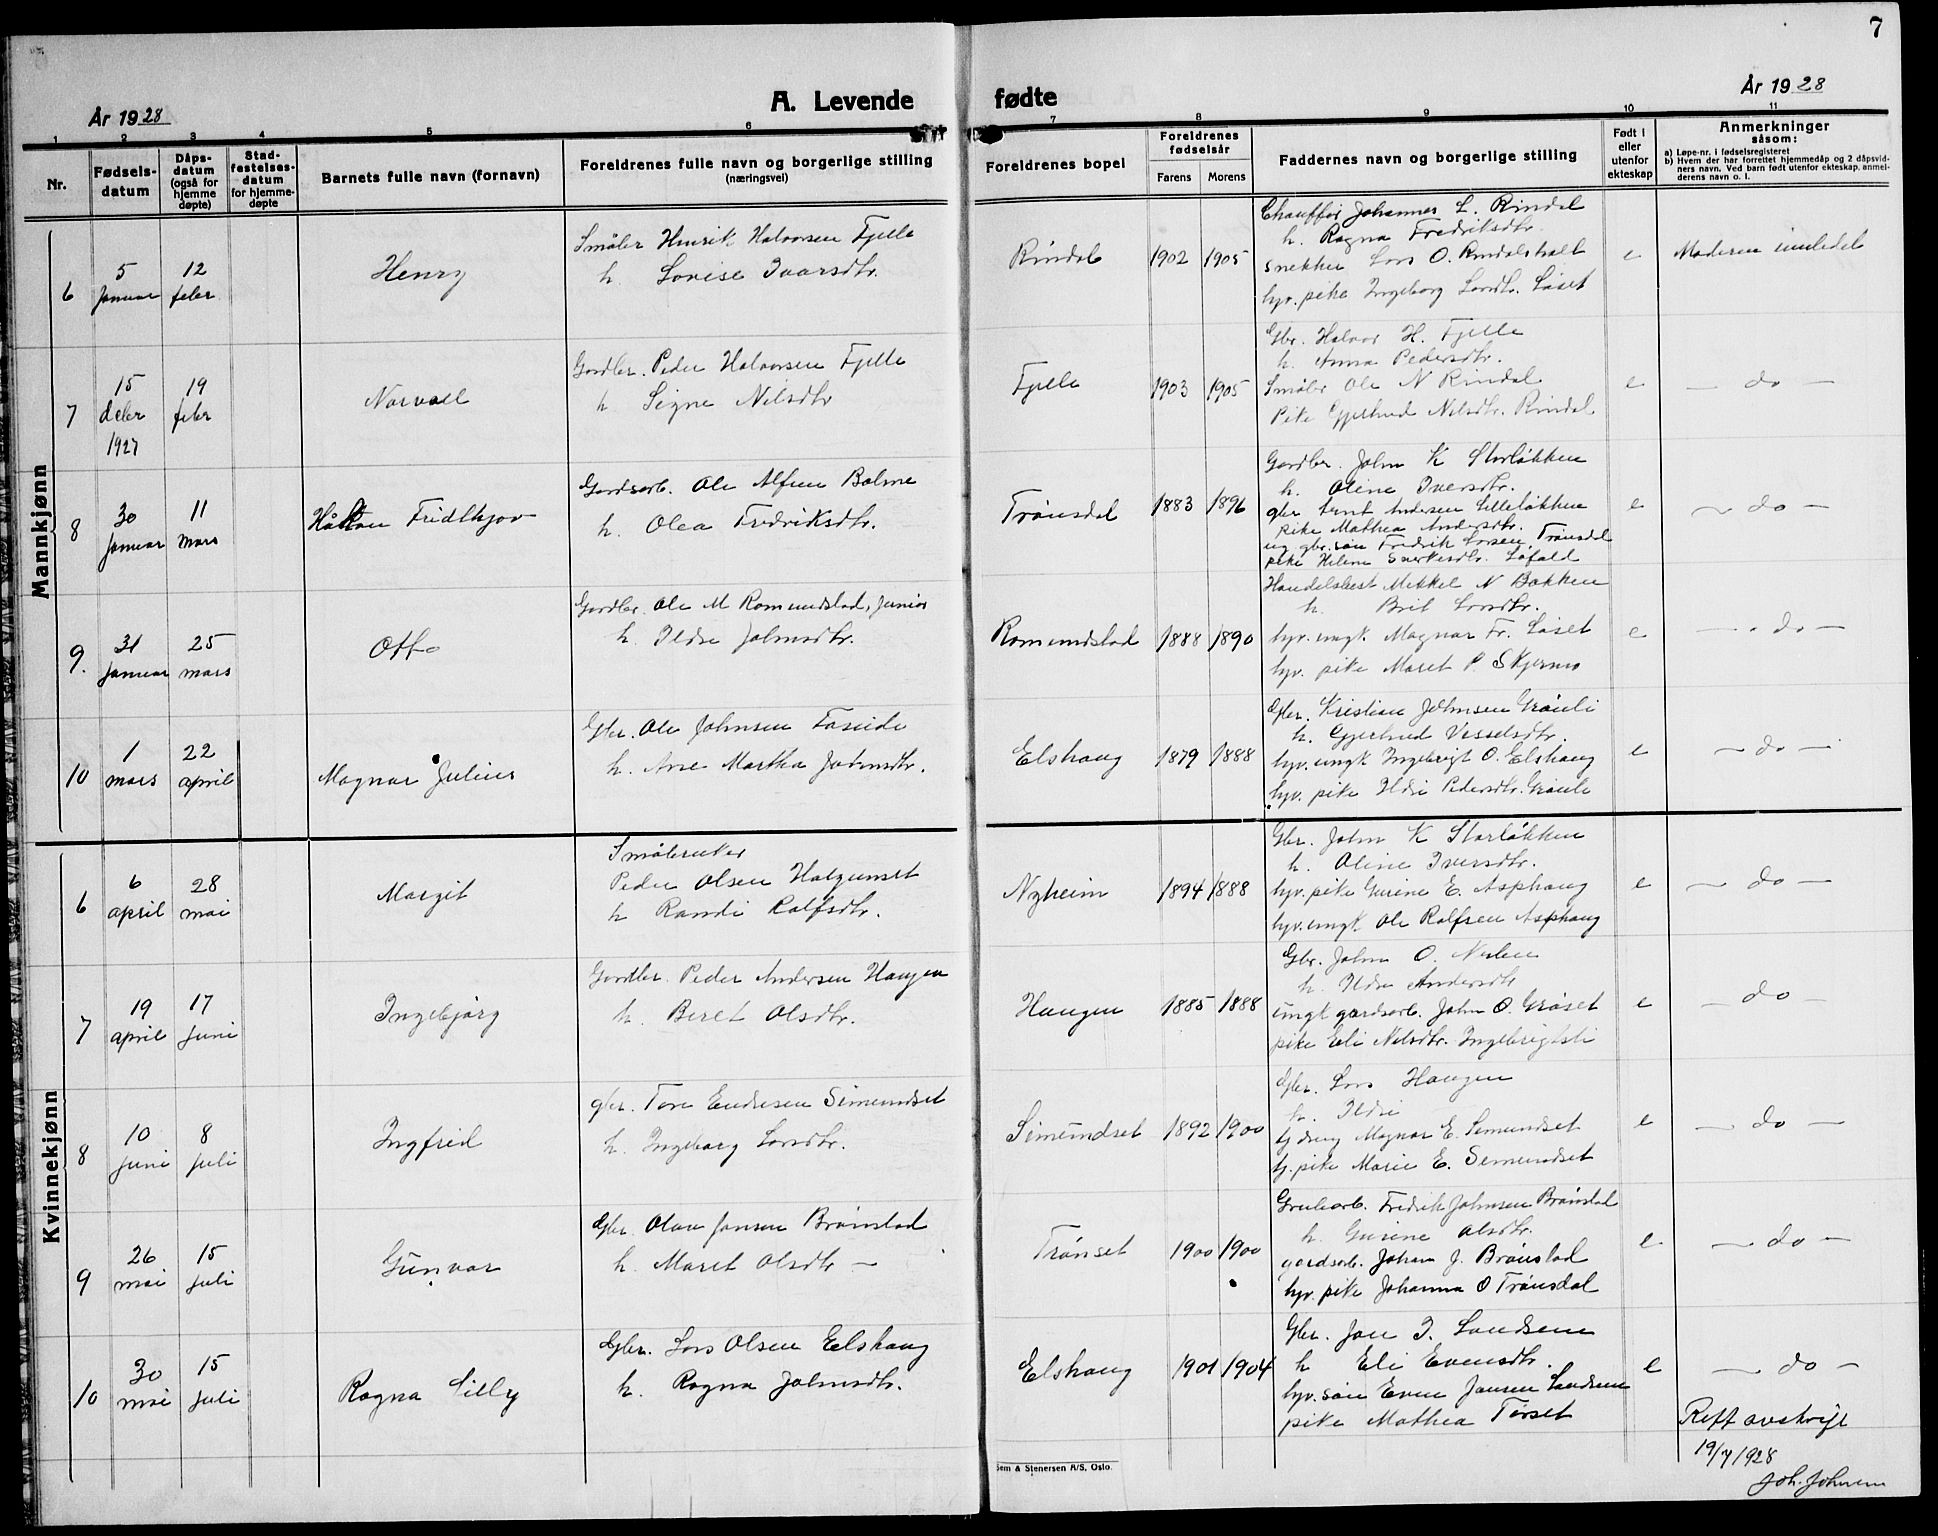 7
År 1928
A. Levende fødte
År 1928
1 2 3 4 5 6 7 8 9 10 11
Nr.
Fødsels-
datum
Dåps-
datum
(også for
hjemme
døpte)
Stad-
festelses-
datum
for hjemme-
døpte
Barnets fulle navn (fornavn)
Foreldrenes fulle navn og borgerlige stilling
(næringsvei)
Foreldrenes bopel
Foreldrenes
fødselsår
Farens Morens
Faddernes navn og borgerlige stilling
Født i
eller
utenfor
ekteskap
Anmerkninger
såsom:
a) Løpe-nr. i fødselsregisteret
b) Hvem der har forrettet hjemmedåp og 2 dåpsvid-
ners navn. Ved barn født utenfor ekteskap, anmel-
derens navn o. l.
Mannkjønn
6
5
januar
12
febr
Henry
Småbr Henrik Halvorsen Fjelle
h. Lovise Ivarsdtr.
Rindal
1902 1905
Chauffør Johannes L. Rindal
h. Ragna Fredriksdtr.
snekker Lars O. Rindalsholt
hyv. pike Ingeborg Larsdtr. Løset
e
Moderen innledet
7
15
debr
1927
19
febr
Norvall
Gardbr. Peder Halvorsen Fjelle
h Signe Nilsdtr
Fjelle
1903 1905
Gbr. Halvor H. Fjelle
h. Anna Pedersdtr.
Småbr Ole N Rindal
Pike Gjertrud Nilsdtr. Rindal
e
— do —
8
30
januar
11
mars
Håkon Fridthjov
Gardsarb. Ole Alfsen Bolme
h. Olea Fredriksdtr.
Trønsdal
1883 1896
Gardbr. John K Storløkken
h. Oline Iversdtr.
gbr Arnt Andersen Lilleløkken
pike Mathea Andersdtr.
ug gbr. søn Fredrik Larsen Trønsdal
pike Helene Sverkesdtr. Løfald
e
— do —
9.
31
januar
25
mars
Otto
Gardbr. Ole M Romundstad, junior
h. Ildri Johnsdtr.
Romundstad
1888 1890
Handelsbest Mikkel N Bakken
h. Brit Larsdtr.
hyv. ungk. Magnar Fr. Løset
hyv. pike Maret P. Skjermo
e
— do —
10
1
mars
22
april
Magnar Julius
Gbr. Ole Johnsen Foseide
h. Ane Martha Johnsdtr.
Elshaug
1879 1888
Gbr. Kristian Johnsen Grønli
h. Gjertrud Visselsdtr.
hyv. ungk Ingebrigt O. Elshaug
hyv. pike Ildri Pedersdtr. Grønli
e
— do —
Kvinnekjønn
6
6
april
28
mai
Margit
Småbruker
Peder Olsen Halgunset
h Randi Rolfsdtr.
Nyheim
1894 1888
Gbr. John K Storløkken
h. Oline Iversdtr.
hyv. pike Gurine E. Asphaug
hyv. ungk Ole Rolfsen Asphaug
e
— do —
7
19
april
17
juni
Ingebjørg
Gardbr. Peder Andersen Haugen
h. Beret Olsdtr.
Haugen
1885 1888
Gbr. John O. Nerlien
h. Ildri Andersdtr
ungk gardsarb. John O. Grøset
pike Eli Nilsdtr. Ingebrigtsli
e
— do —
8
10
juni
8
juli
Ingfrid
gbr. Tore Endresen Simundset
h. Ingeborg Larsdtr.
Simundset
1892 1900
Gbr. Lars Haugen
h. Ildri
hj dreng Magnar E. Simundset
hj. pike Marie E. Simundset
e
— do —
9
26
mai
15
juli
Gunvor
Gbr. Olav Jonsen Brønstad
h. Maret Olsdtr —
Trønset
1900 1900
Grubearb. Fredrik Johnsen Brønstad
h. Gurine Olsdtr.
gardsarb. Johan J. Brønstad
hyv. pike Johanna O Trønsdal
e
— do —
10
30
mai
15
juli
Ragna Lilly
Gbr. Lars Olsen Elshaug
h. Ragna Johnsdtr.
Elshaug
1901 1904
Gbr. Jon I. Landsem
h Eli Evensdtr.
hyv. søn Even Jonsen Landsem
pike Mathea Tørset
e
— do —
Rett avskrift
19/7 1928
Joh. Johnsen
Sem & Stenersen A/S, Oslo.